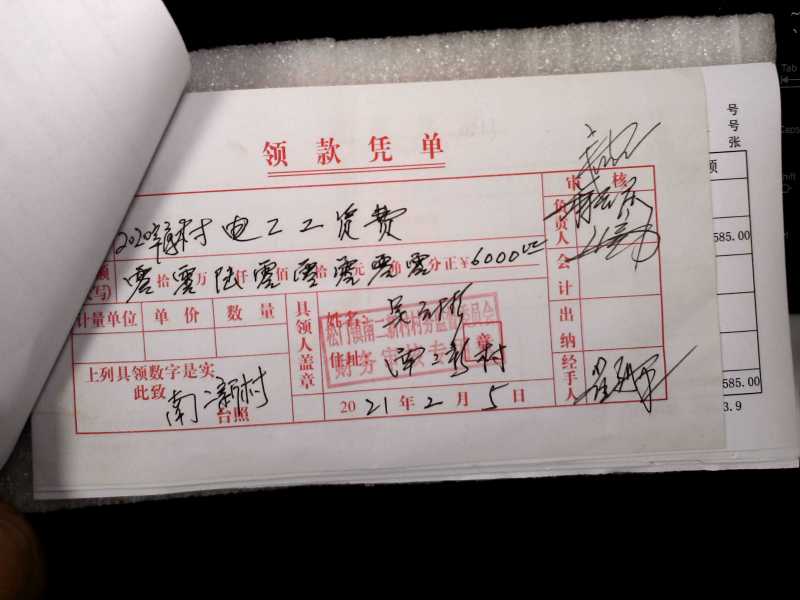 领款凭单
审核
2020年 村电工工资费
负责人
额 写) 零拾零万陆仟零佰零拾零元零角零分正¥6000.00
会计
计量单位 单价 数量
具领人盖章
姓名:
住址: 新村
章
松门镇南 新村村务监督委员会
财务审核专
出纳
上列具领数字是实
此致
南 新村
台照
2021年2月5日
经手人
号
号
张
额
585.00
585.00
3.9
Tab
Caps
Shift